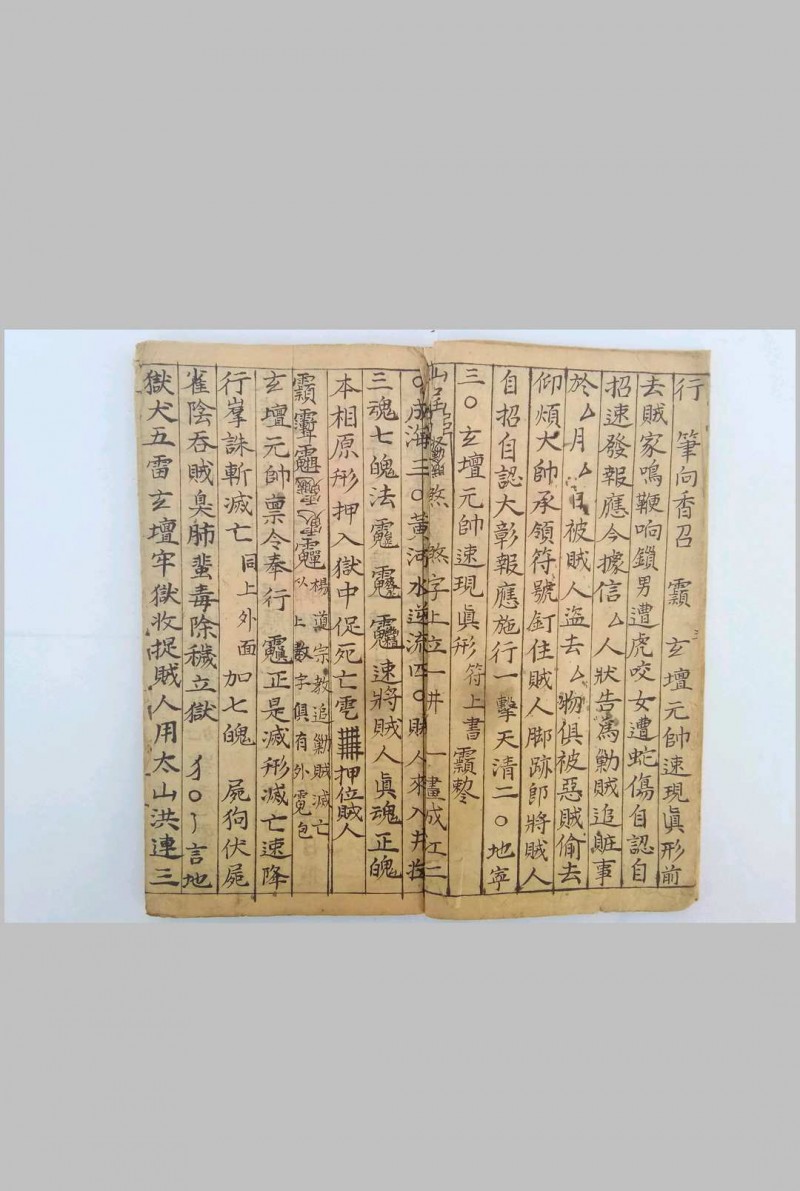 行 筆向香召 玄壇元帥速現眞形前
去賊家鳴鞭响鎖男遭虎咬女遭蛇傷自認自
招速發報應今據信厶人狀告爲勦賊追賍事
於厶月厶日被賊人盜去厶物俱被惡賊偷去
仰煩大帥承領符號釘住賊人脚跡郎將賊人
自招自認大彰報應施行一擊天清二〇地寕
三〇玄壇元帥速現眞形 符上書
煞 煞字上立一井 一畫成江二
〇成海三〇黃河水逆流四〇賊人來入井
三魂七魄法 速將賊人眞魂正魄
本相原形押入獄中促死亡 押位賊人
楊道宗教追勦賊滅亡
以上數字俱有外 包
玄壇元帥禀令奉行 正是滅形滅亡速降
行 誅斬滅亡 同上外面 加七魄 屍狗伏屍
雀陰吞賊臭肺蜚毒除穢立獄 犭〇 言地
獄犬五雷玄壇牢獄收捉賊人用太山洪連三